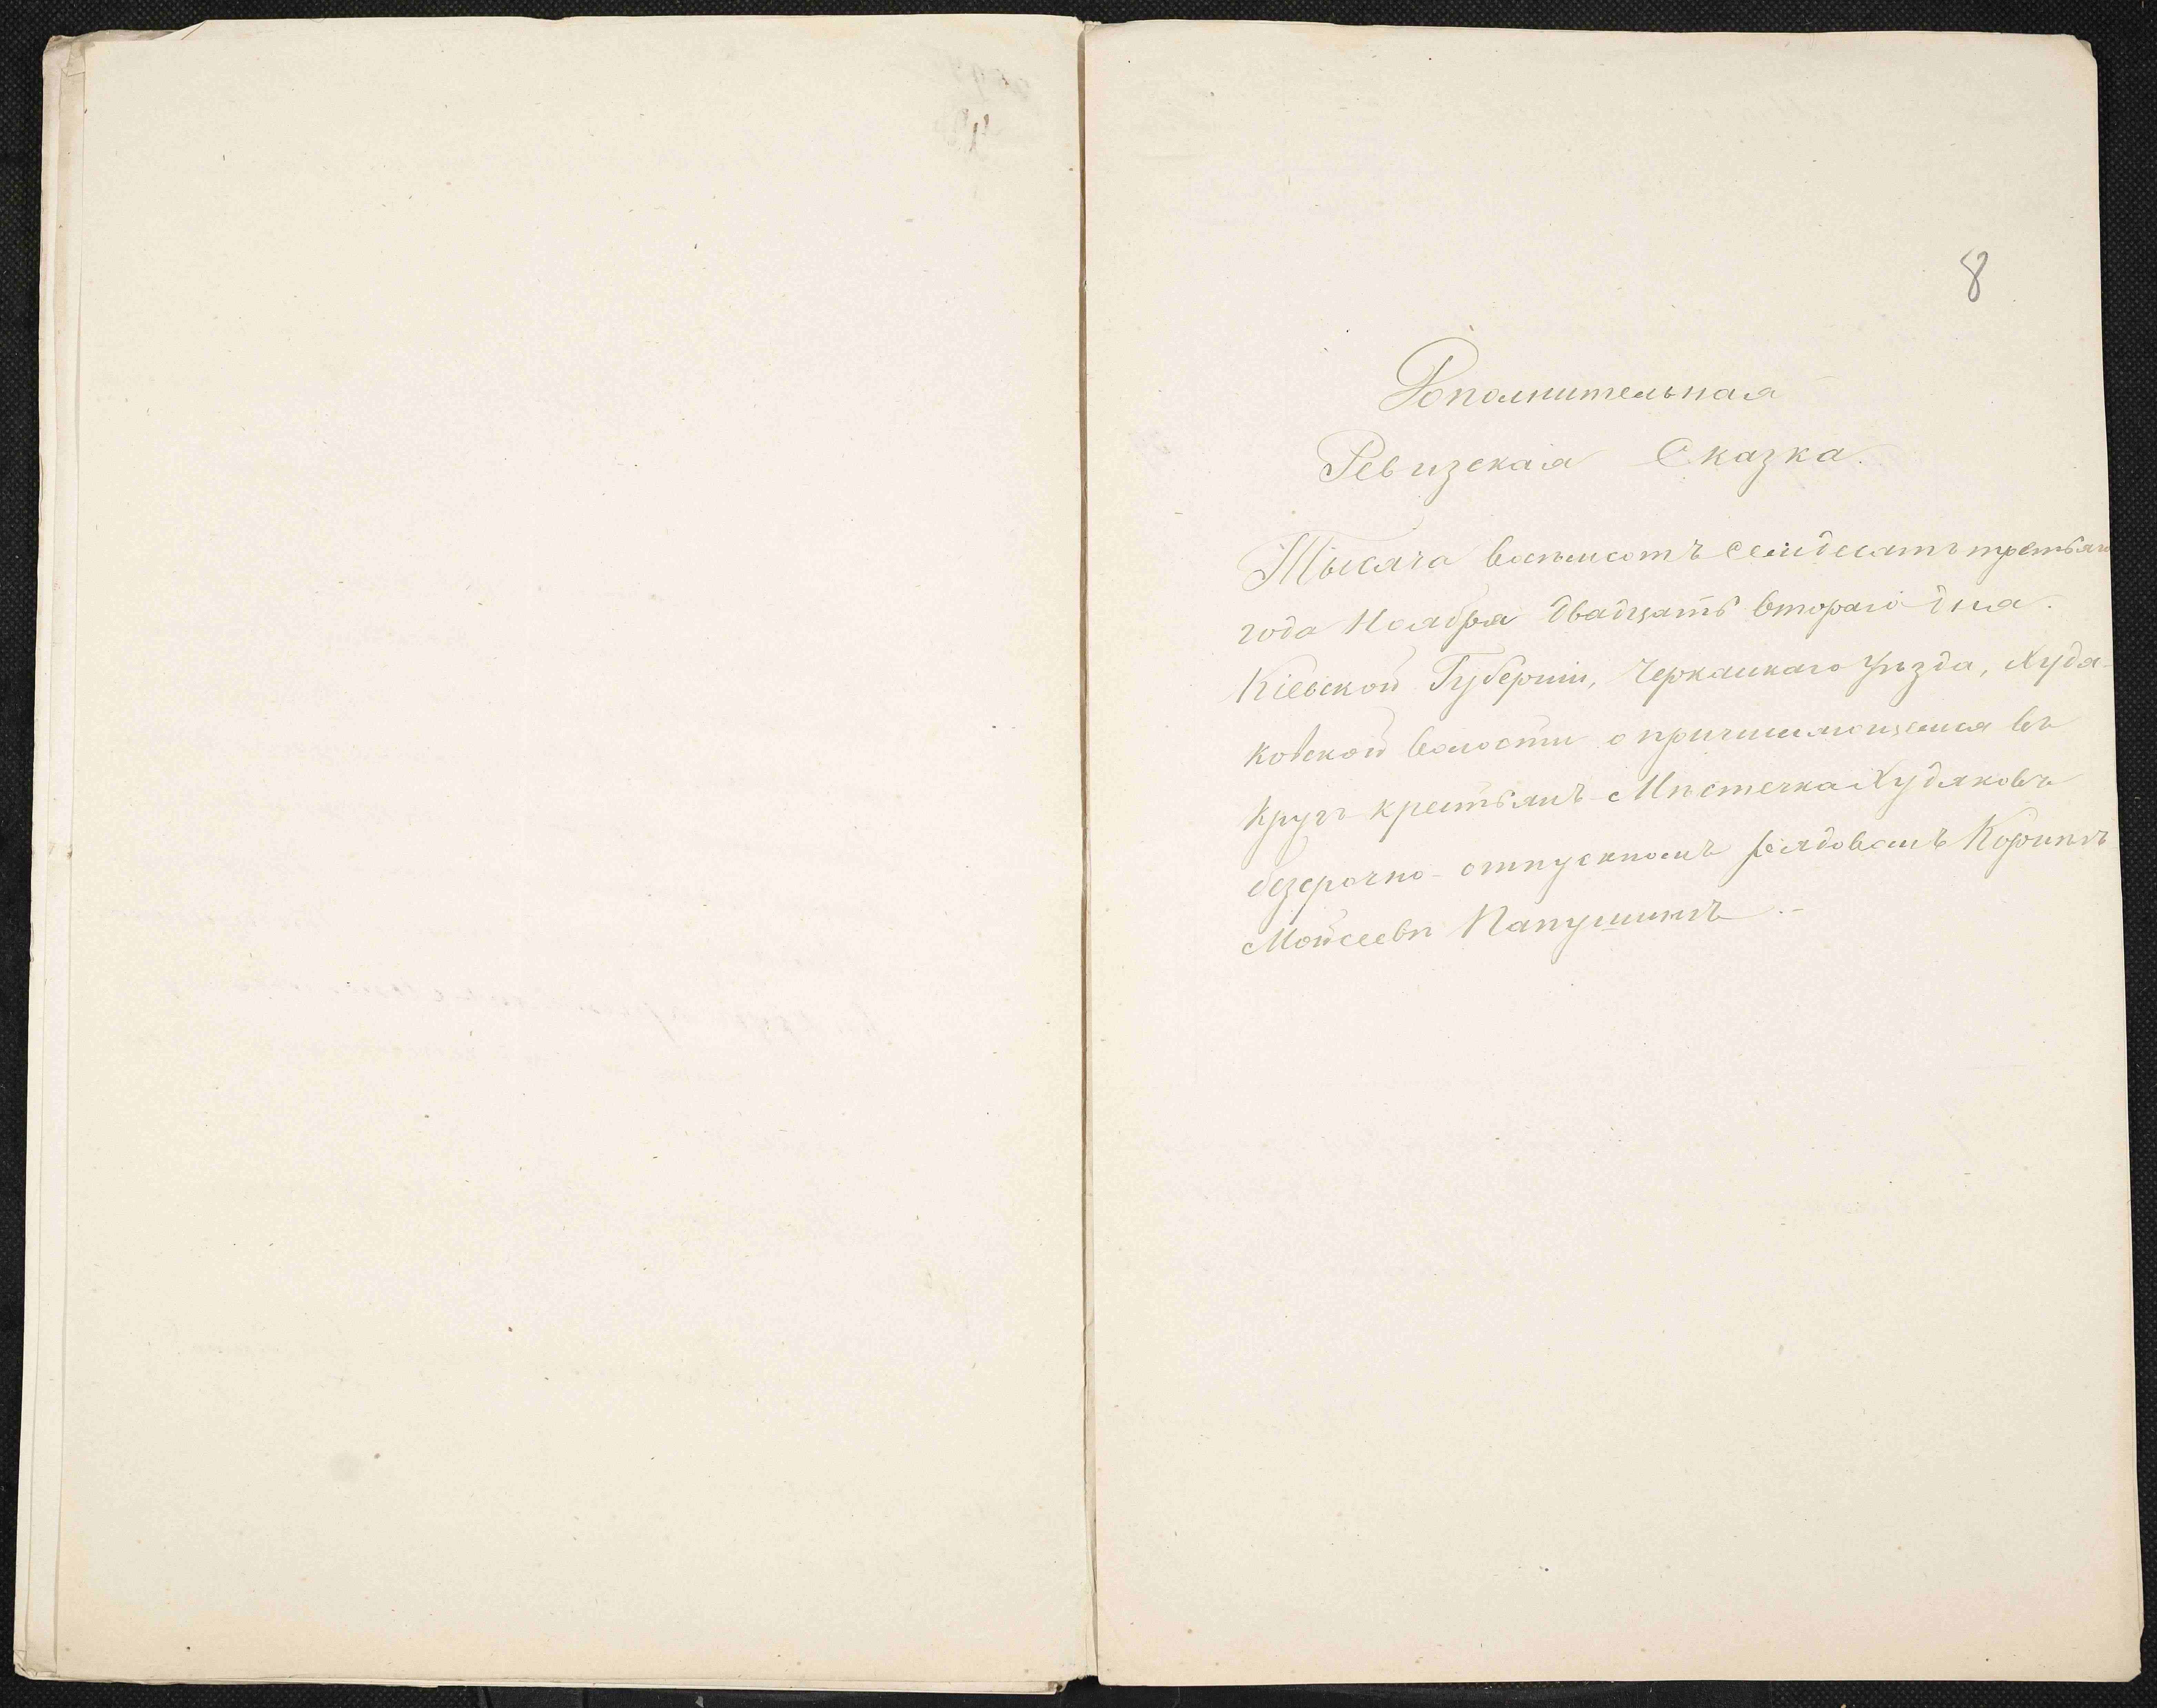 8
Дополнительная
Ревизская Сказка.
Тысяча восемсотъ семидесятъ третьяго
года Ноября двадцать втораго дня.
Кіевской Губерніи, Черкаскаго уѣзда, Худя-
ковской волости о причисляющемся въ
кругъ крестьянъ Мѣстечка Худяковъ
безсрочно-отпускномъ рядовомъ
Мойсеевѣ Папушинъ.-